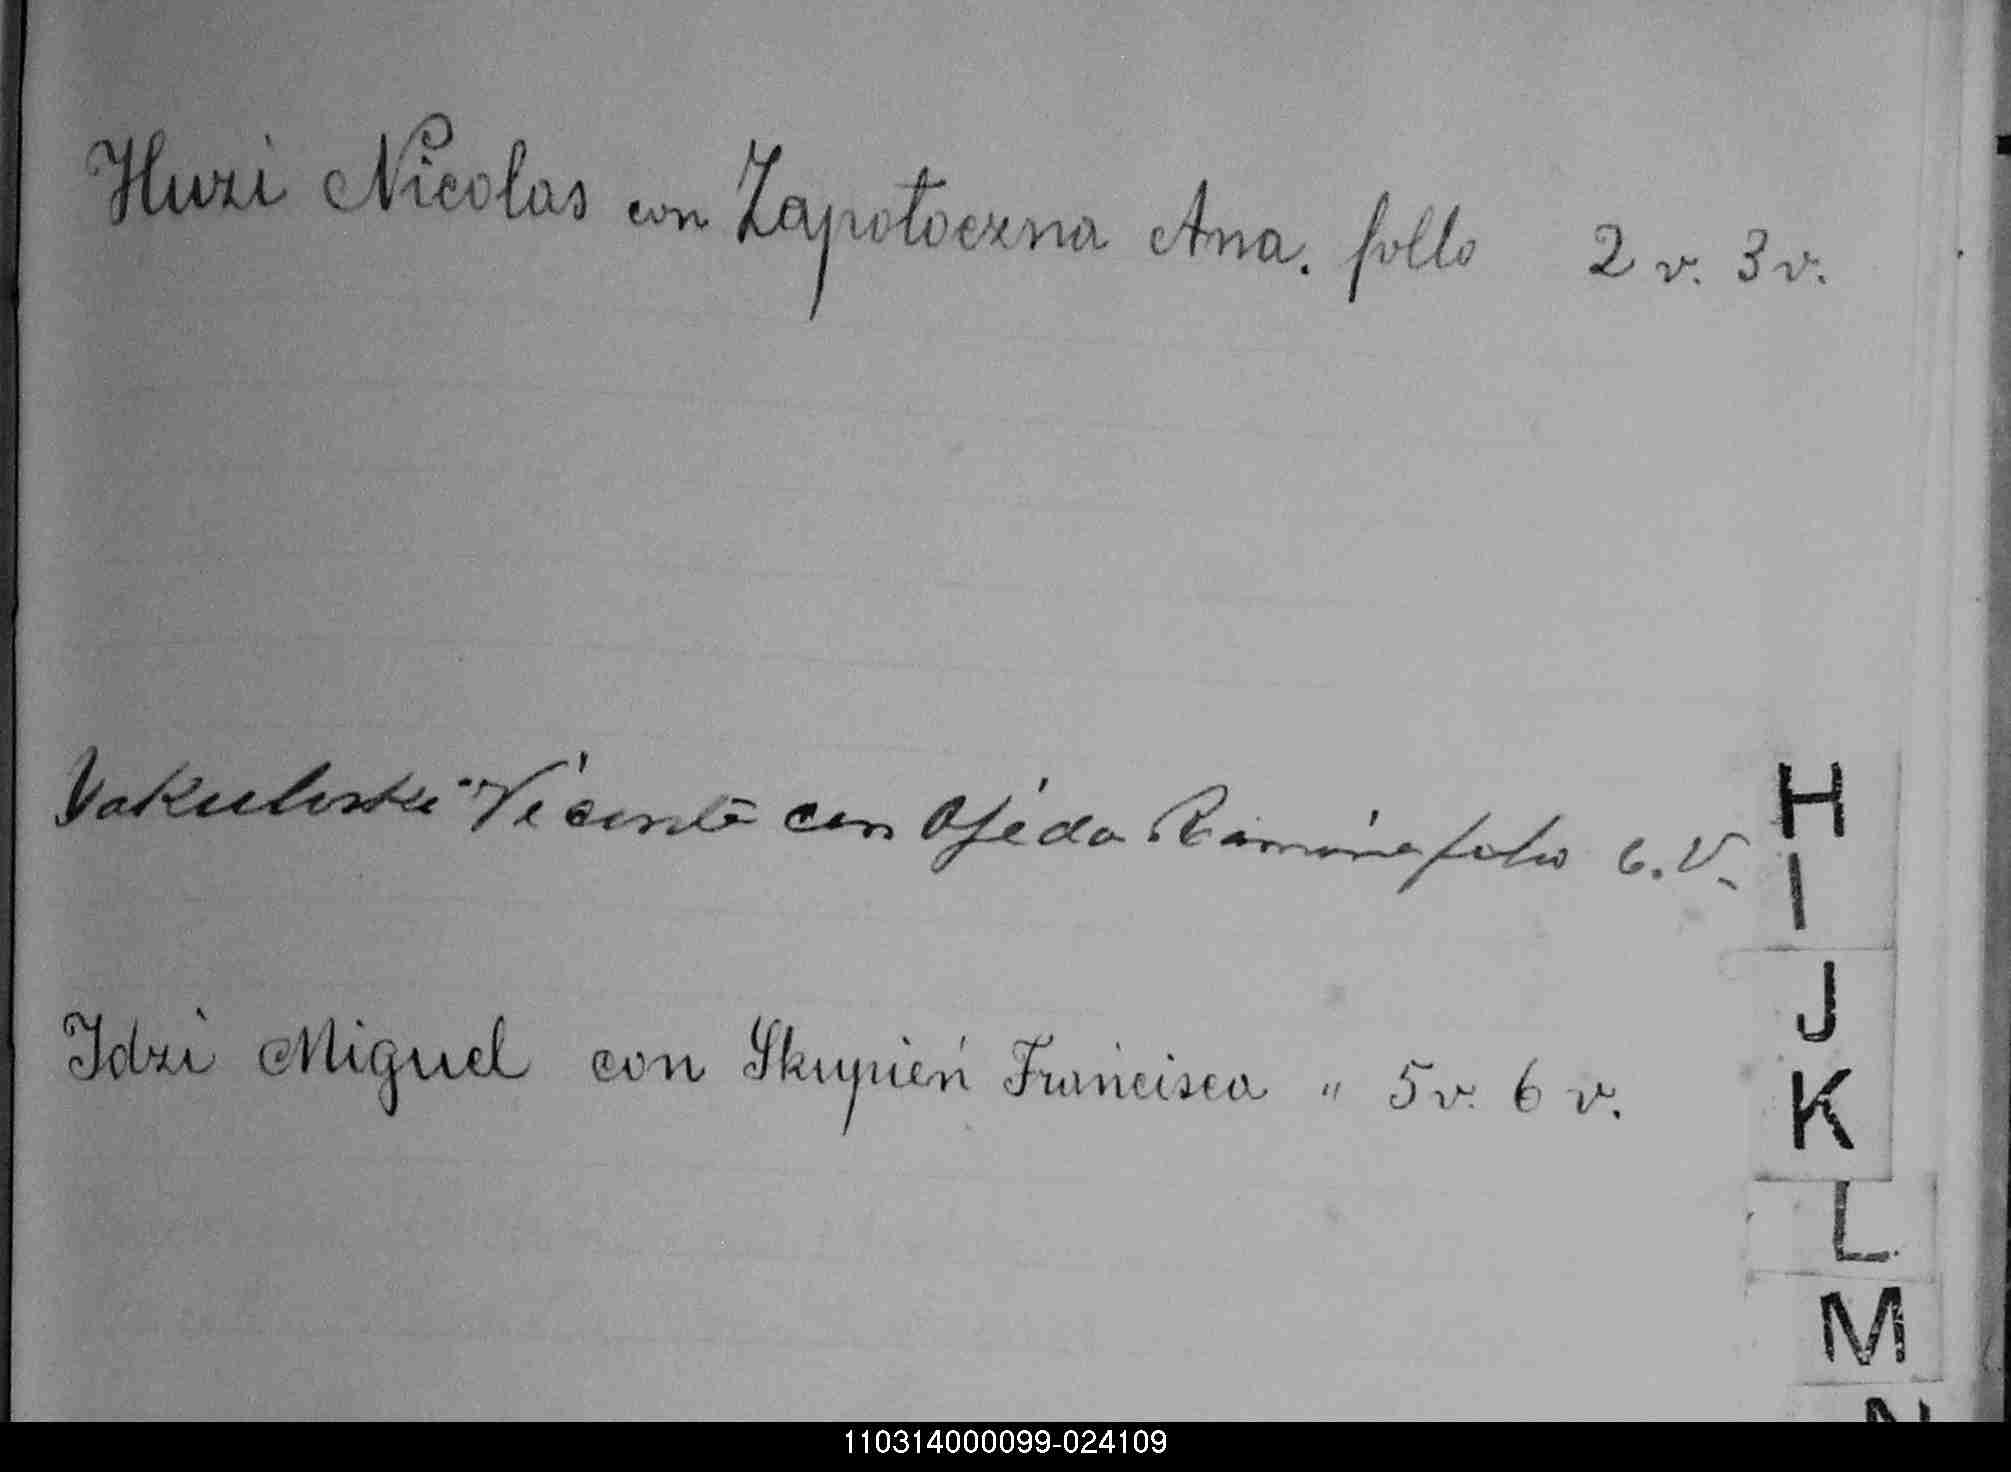 Huzi Nicolas con Zapotoczna Ana. follo 2 v. 3 v.
Vicente con Ojéda Ramóna folio 6. V.
Idzi Miguel con Skupień Francisca " 5 v. 6 v.
H
I
J
K
L
M
N
110314000099-024109